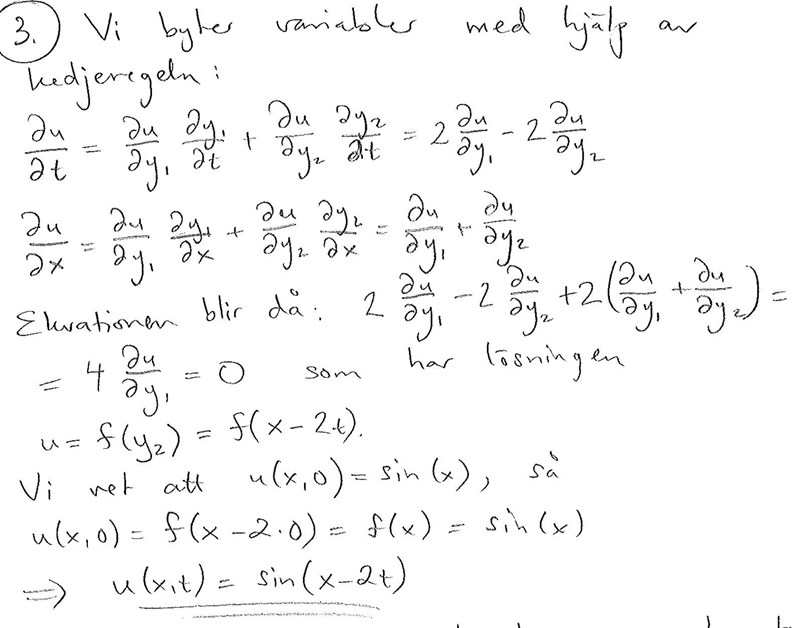 3. Vi byter variabler med hjälp av
kedjeregeln:
∂u/∂t = ∂u/∂y₁ ∂y₁/∂t + ∂u/∂y₂ ∂y₂/∂t = 2 ∂u/∂y₁ - 2 ∂u/∂y₂
∂u/∂x = ∂u/∂y₁ ∂y₁/∂x + ∂u/∂y₂ ∂y₂/∂x = ∂u/∂y₁ + ∂u/∂y₂
Ekvationen blir då: 2 ∂u/∂y₁ - 2 ∂u/∂y₂ + 2(∂u/∂y₁ + ∂u/∂y₂) =
= 4 ∂u/∂y₁ = 0 som har lösningen
u = f(y₂) = f(x - 2t).
Vi vet att u(x,0) = sin(x), så
u(x,0) = f(x - 2·0) = f(x) = sin(x)
⟹ u(x,t) = sin(x-2t)